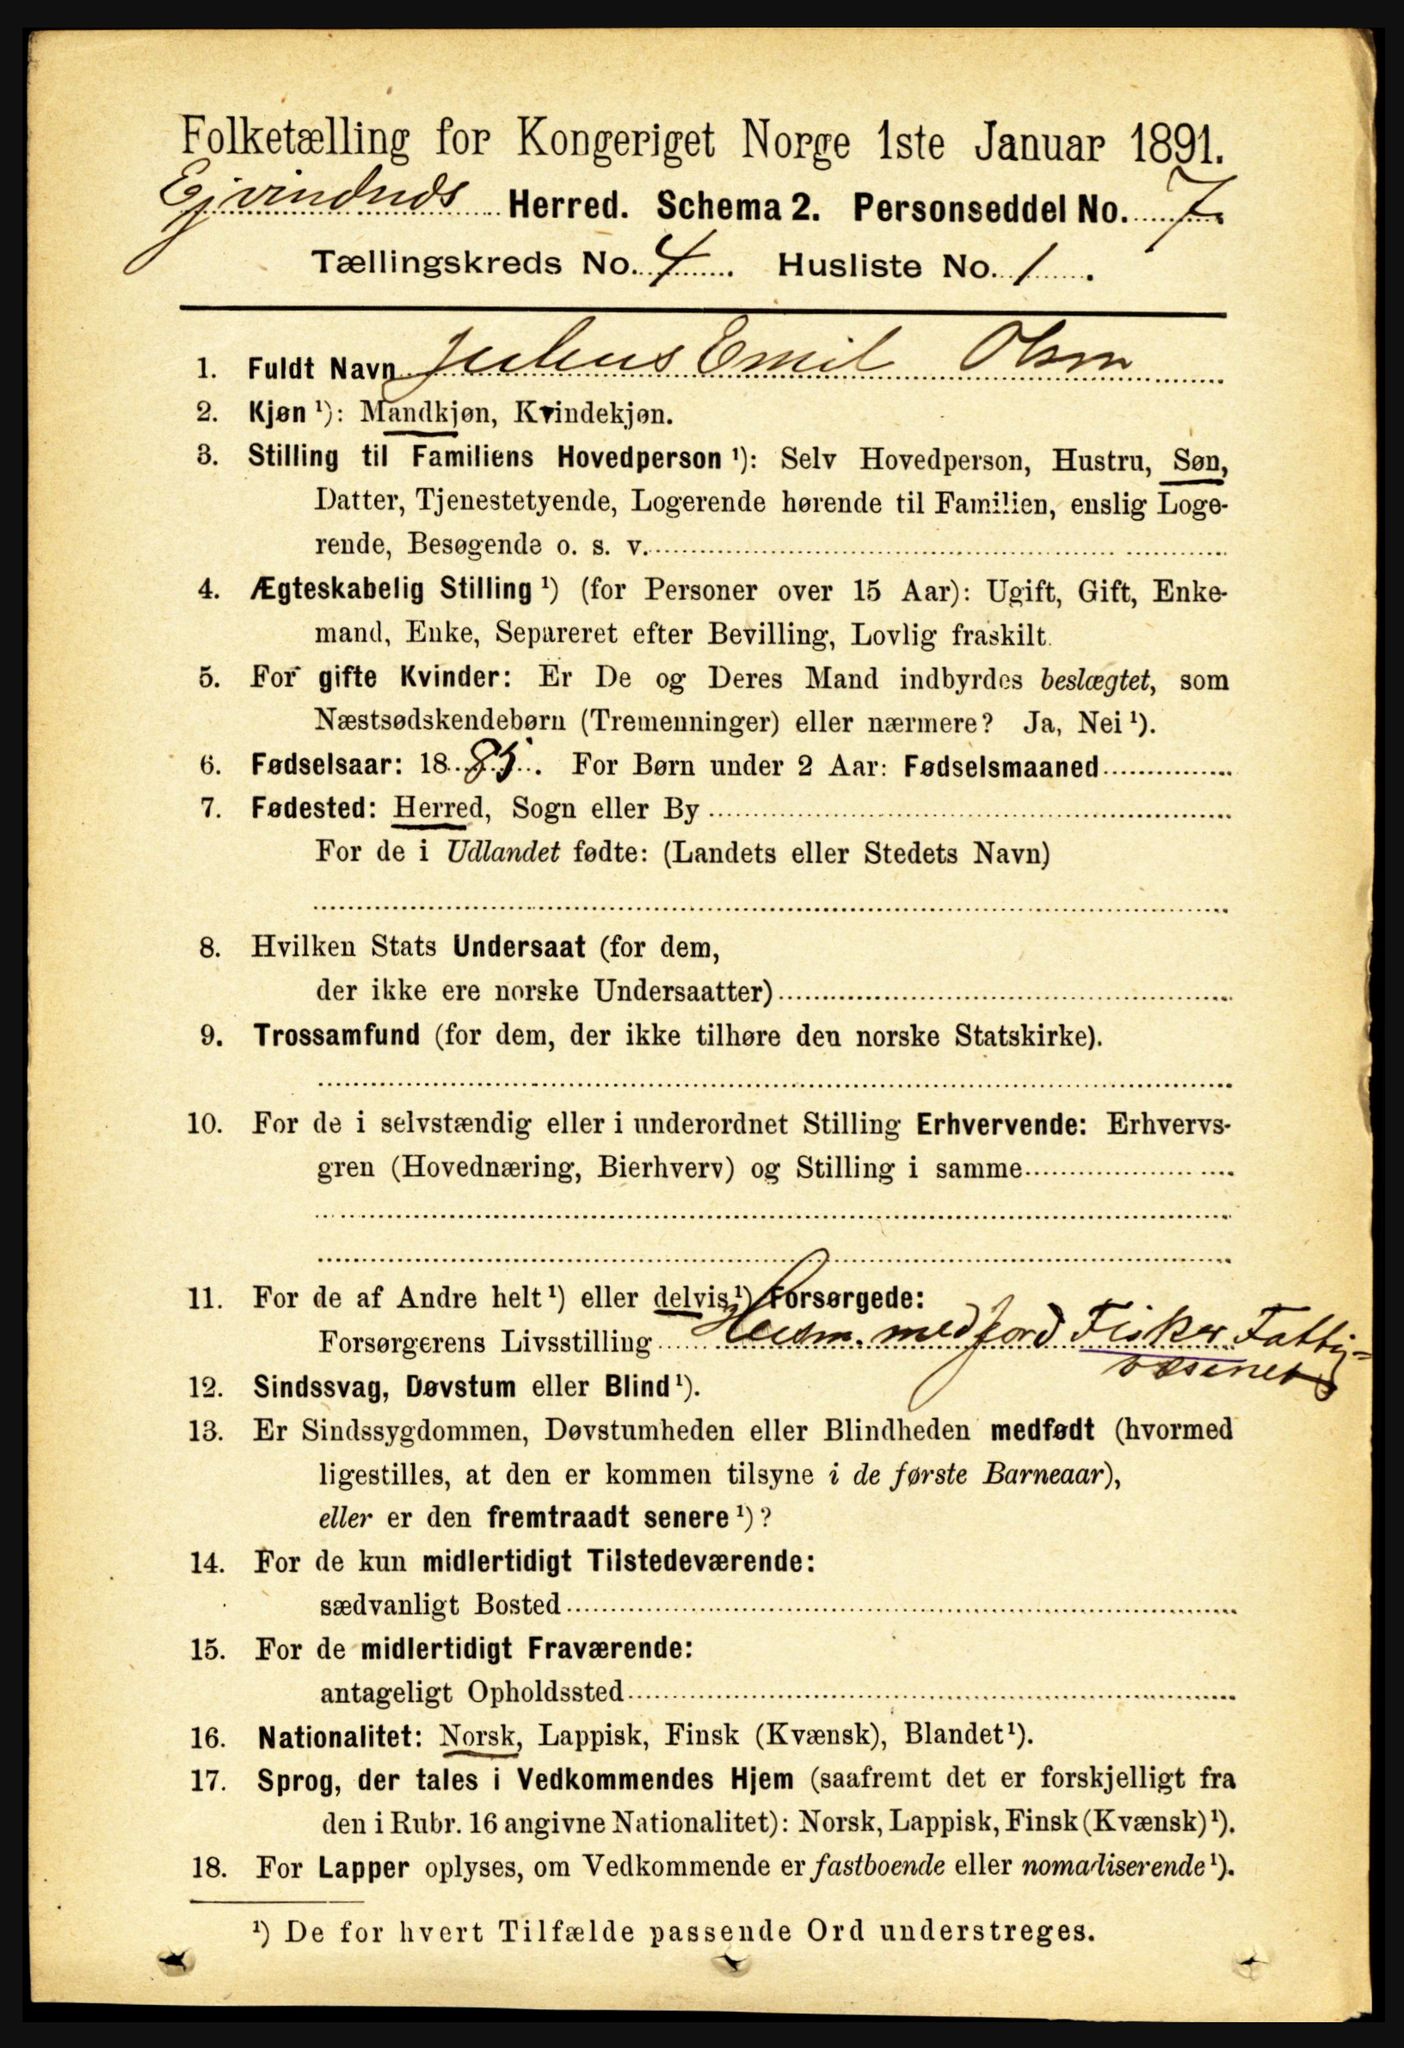 Folketælling for Kongeriget Norge 1ste Januar 1891.
Ejvindvds Herred. Schema 2. Personseddel No. 7.
Tællingskreds No. 4. Husliste No. 1.
1. Fuldt Navn Julius Emil Olsen
2. Kjøn ¹): Mandkjøn, Kvindekjøn.
3. Stilling til Familiens Hovedperson ¹): Selv Hovedperson, Hustru, Søn,
Datter, Tjenestetyende, Logerende hørende til Familien, enslig Loge-
rende, Besøgende o. s. v.
4. Ægteskabelig Stilling ¹) (for Personer over 15 Aar): Ugift, Gift, Enke-
mand, Enke, Separeret efter Bevilling, Lovlig fraskilt.
5. For gifte Kvinder: Er De og Deres Mand indbyrdes beslægtet, som
Næstsødskendebørn (Tremenninger) eller nærmere? Ja, Nei ¹).
6. Fødselsaar: 1885. For Børn under 2 Aar: Fødselsmaaned
7. Fødested: Herred, Sogn eller By
For de i Udlandet fødte: (Landets eller Stedets Navn)
8. Hvilken Stats Undersaat (for dem,
der ikke ere norske Undersaatter)
9. Trossamfund (for dem, der ikke tilhøre den norske Statskirke).
10. For de i selvstændig eller i underordnet Stilling Erhvervende: Erhvervs-
gren (Hovednæring, Bierhverv) og Stilling i samme
11. For de af Andre helt ¹) eller delvis ¹) Forsørgede:
Forsørgerens Livsstilling Husm. med jord Fisker Fattig-
væsenet
12. Sindssvag, Døvstum eller Blind ¹).
13. Er Sindssygdommen, Døvstumheden eller Blindheden medfødt (hvormed
ligestilles, at den er kommen tilsyne i de første Barneaar),
eller er den fremtraadt senere ¹)?
14. For de kun midlertidigt Tilstedeværende:
sædvanligt Bosted
15. For de midlertidigt Fraværende:
antageligt Opholdssted
16. Nationalitet: Norsk, Lappisk, Finsk (Kvænsk), Blandet ¹).
17. Sprog, der tales i Vedkommendes Hjem (saafremt det er forskjelligt fra
den i Rubr. 16 angivne Nationalitet): Norsk, Lappisk, Finsk (Kvænsk) ¹).
18. For Lapper oplyses, om Vedkommende er fastboende eller nomadiserende ¹).
¹) De for hvert Tilfælde passende Ord understreges.